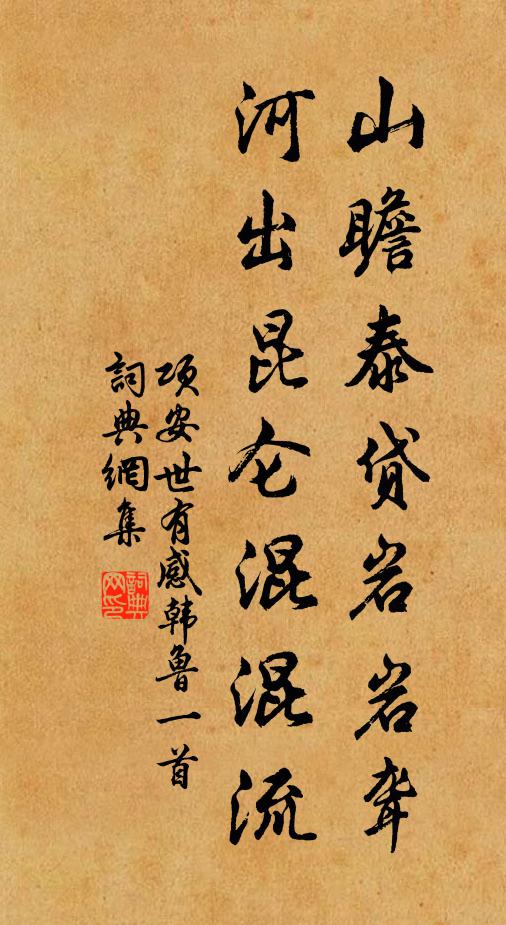 山瞻泰贷岩岩耸
河出昆仑混混流
项安世有感韩鲁一首
詞典網集
詞典网印